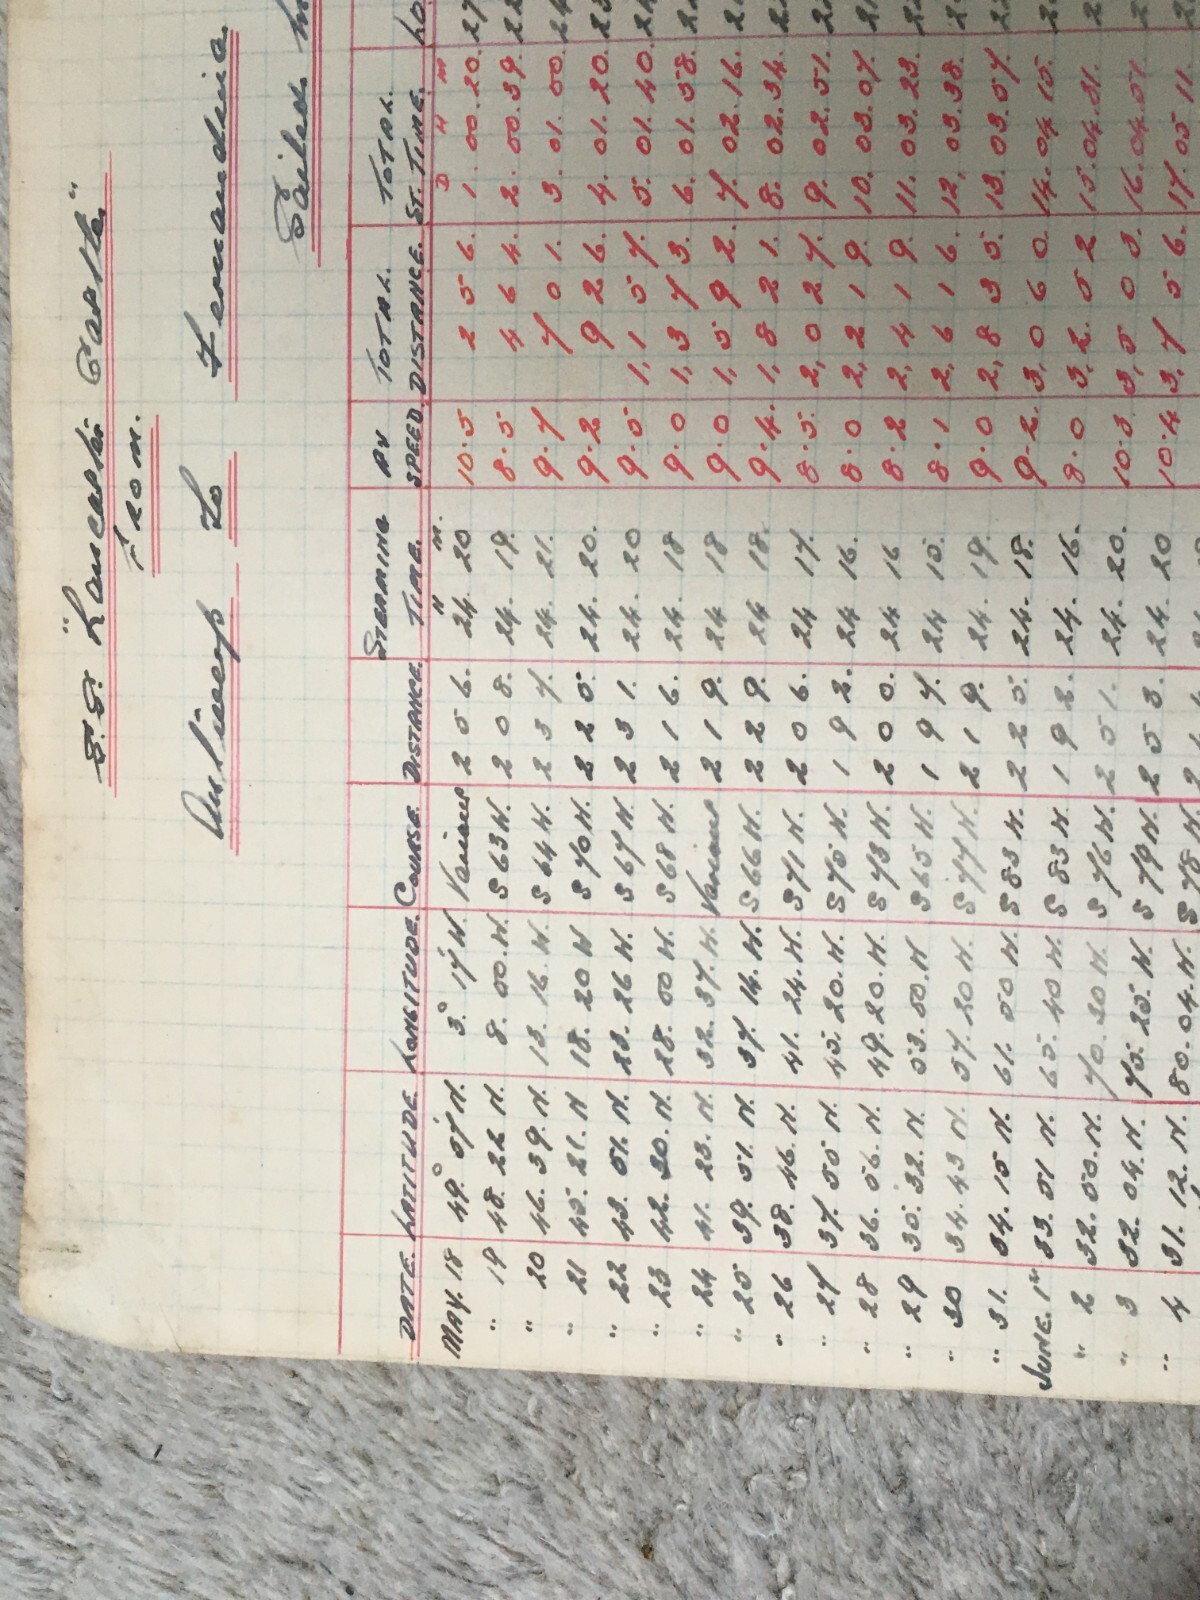 S.S. "Lancaster Castle"
FROM.
Antwerp to Fernandina
Sailed
DATE. LATITUDE. LONGITUDE. COURSE. DISTANCE. STEAMING TIME. AV SPEED. TOTAL DISTANCE. TOTAL ST. TIME. LO.
H M. D H M
MAY. 18 49° 57' N. 3° 17' W. Various 256. 24. 20 10.5 256. 1. 00. 20.
" 19 48. 22 N. 8. 00. W. S 63 W. 208. 24. 19. 8.5. 464. 2. 00. 39.
" 20 46. 39. N. 13. 16 W. S 64 W. 237. 24. 21. 9.7 701. 3. 01. 00
" 21 45. 21. N 18. 20 W S 70 W. 225. 24. 20. 9.2 926. 4. 01. 20.
" 22 43. 51. N. 23. 26 W. S 67 W. 231. 24. 20 9.5 1,157. 5. 01. 40
" 23 42. 30. N. 28. 00 W. S 68 W. 216. 24. 18 9.0 1,373. 6. 01. 58.
" 24 41. 23. N. 32. 37. W. Various 219. 24 18 9.0 1,592. 7. 02. 16.
" 25 39. 51. N. 37. 14. W. S 66 W. 229. 24 18. 9.4. 1,821. 8. 02. 34.
" 26 38. 46. N. 41. 24. W. S 71 W. 206. 24 17. 8.5. 2,027. 9. 02. 51.
" 27 37. 55 N. 45. 20. W. S 75 W. 192. 24 16. 8.0 2,219. 10. 03. 07.
" 28 36. 56. N. 49. 20. W. S 73 W. 200. 24. 16 8.2 2,419. 11. 03. 23.
" 29 35. 32. N. 53. 00. W S 65 W. 197. 24 15. 8.1 2,616. 12. 03. 38.
" 30 34. 43 N. 57. 20 W. S 77 W. 219. 24. 19. 9.0 2,835. 13. 03. 57.
" 31. 34. 15 N. 61. 50 W. S 83 W. 225. 24. 18. 9.2. 3,060. 14. 04. 15.
JUNE. 1st 33. 51 N. 65. 40 W. S 83 W. 192. 24. 16. 8.0 3,252 15. 04. 31.
" 2 32. 50. N. 70. 30 W. S 76 W. 251. 24. 20. 10.3 3,503. 16. 04. 51
" 3 32. 04. N. 75. 25. W. S 79 W. 253. 24 20 10.4 3,756. 17. 05. 11.
" 4 31. 12. N. 80. 04. W. S 78 W